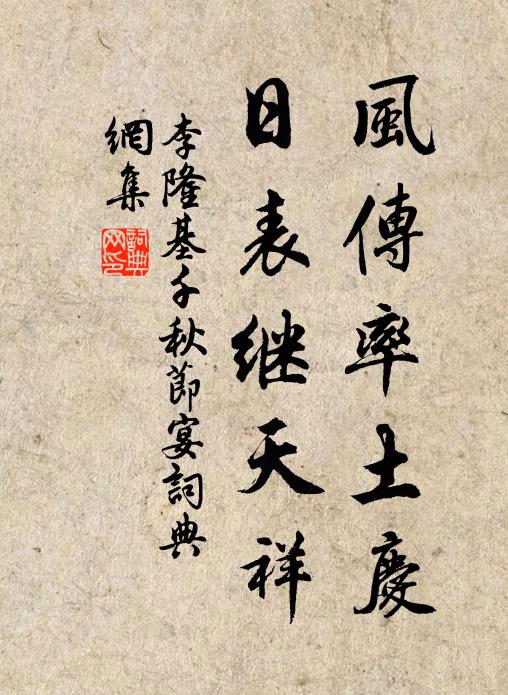 風傳率土慶
日表继天祥
李隆基千秋節宴詞典
網集
詞典网印